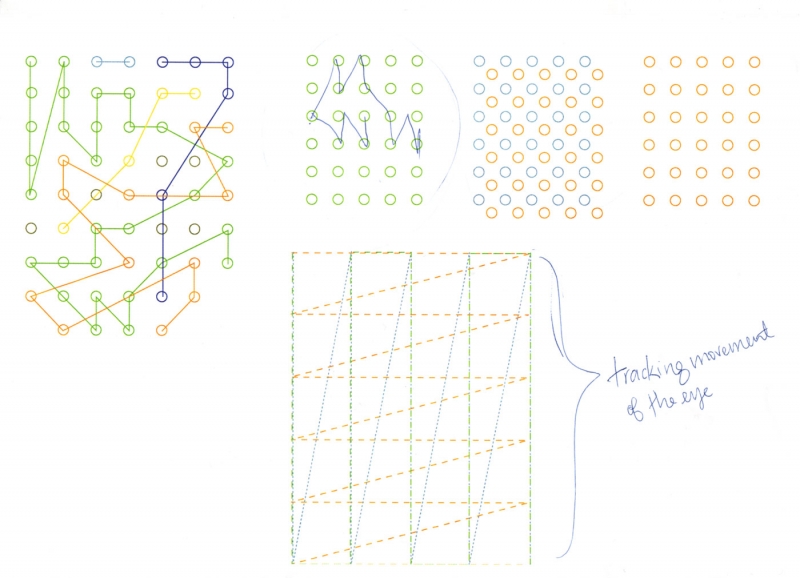 tracking movement
of the eye